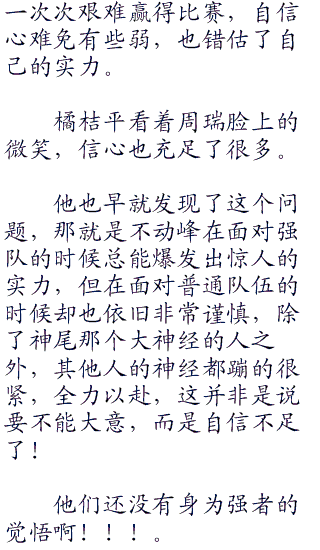 一次次艰难赢得比赛，自信
心难免有些弱，也错估了自
己的实力。
橘桔平看着周瑞脸上的
微笑，信心也充足了很多。
他也早就发现了这个问
题，那就是不动峰在面对强
队的时候总能爆发出惊人的
实力，但在面对普通队伍的
时候却也依旧非常谨慎，除
了神尾那个大神经的人之
外，其他人的神经都蹦的很
紧，全力以赴，这并非是说
要不能大意，而是自信不足
了！
他们还没有身为强者的
觉悟啊！！！。